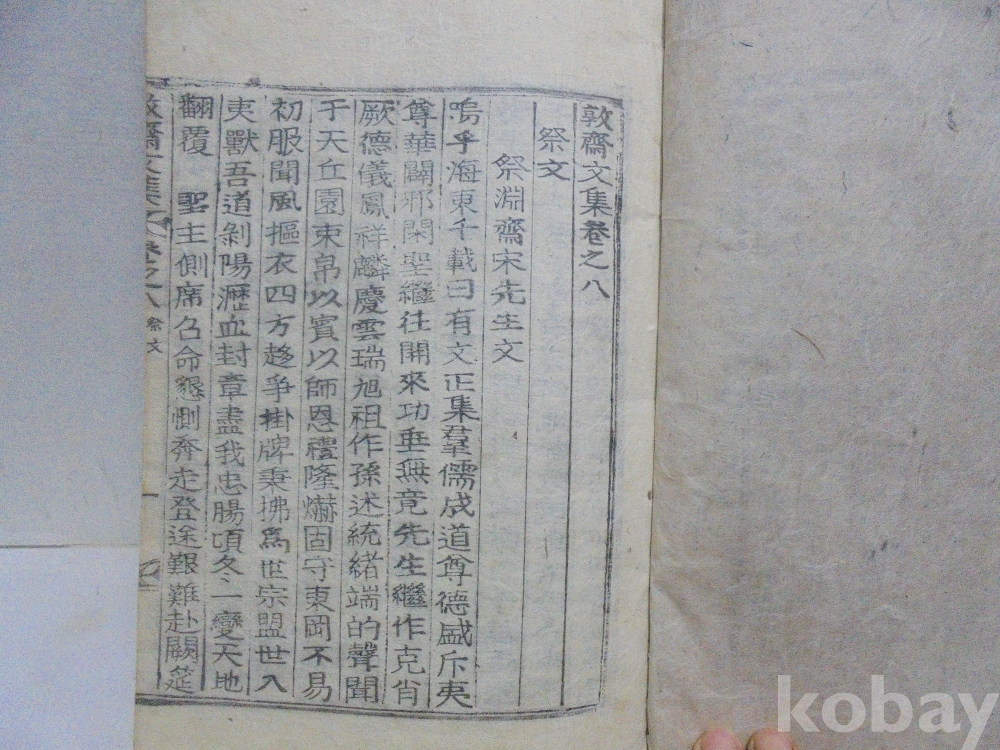 敦齋文集卷之八
祭文
祭淵齋宋先生文
嗚乎海東千載曰有文正集羣儒成道尊德盛斥夷
尊華闢邪閑聖繼往開來功垂無竟先生繼作克肖
厥德儀鳳祥麟慶雲瑞旭祖作孫述統緖端的聲聞
于天丘園束帛以賓以師恩禮隆爀固守東岡不易
初服聞風摳衣四方趍爭掛牌秉拂爲世宗盟世入
夷獸吾道剝陽瀝血封章盡我忠腸頃冬二變天地
翻覆 聖主側席召命懇惻奔走登途艱難赴闕筵
敦齋文集 卷之八 祭文 一
kobay